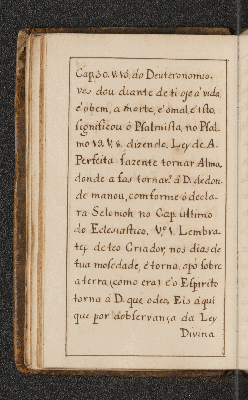 Cap. 30. V. 15, do Deuteronomio.
ves dou diante de ti oje á vida,
é obem, a morte, é ómal, é isto,
significou ó Psalmista, no Psal
mo 19. V. 8. dizendo, Ley de A.
Perfeita fazente tornar Alma,
donde a fas tornar? á D. dedon
de manou, comforme ó decla
ra Selomoh no Cap. ultimo
do Eclesiastico, Vº. 1. Lembra
te de teo Criador, nos dias de
tua mosedade, é torna o pó sobre
a terra (como era) é o Espirito
torna á D. que o deo, Eis áqui
que por áobservança da Ley
Divina